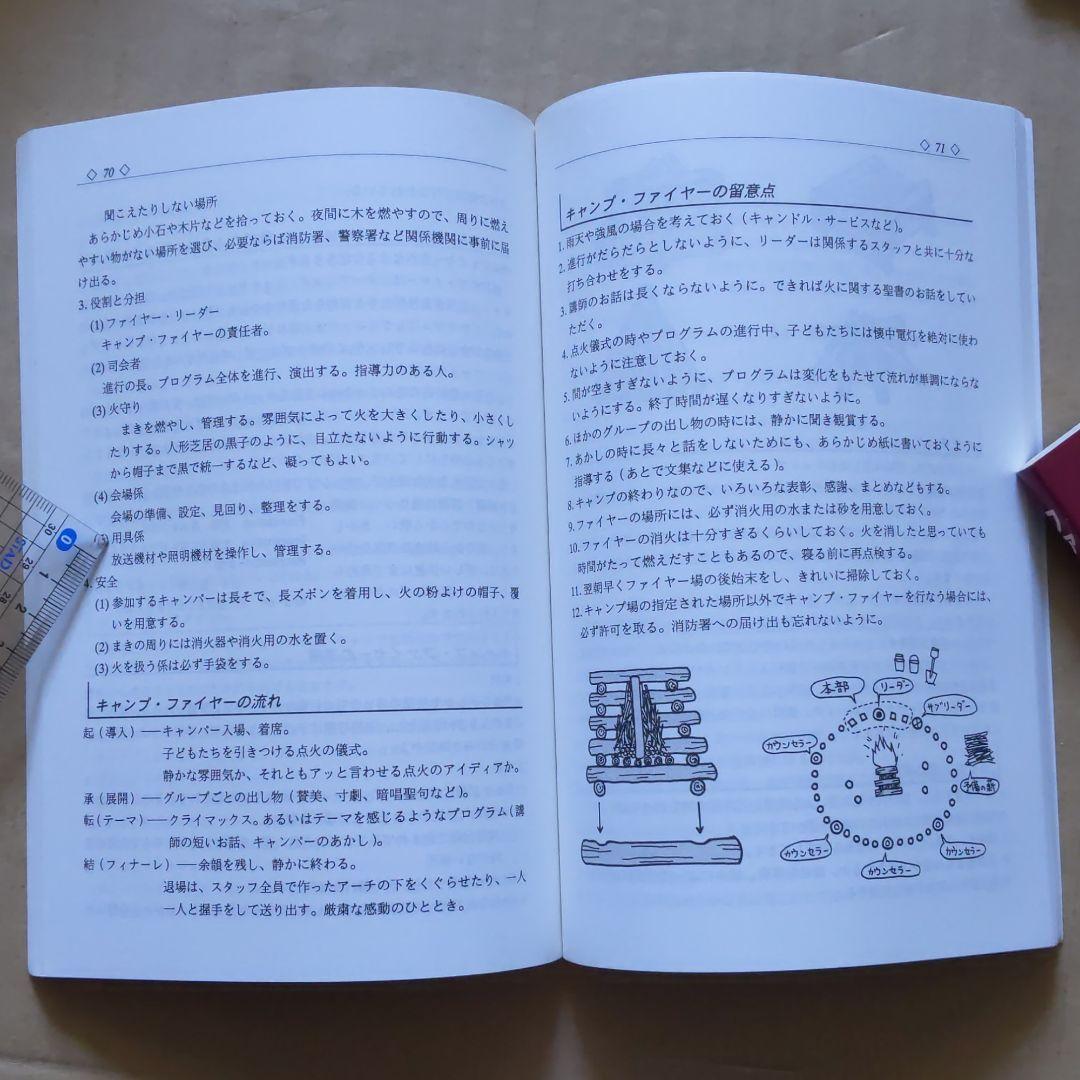 ◇ 70 ◇
聞こえたりしない場所
あらかじめ小石や木片などを拾っておく。夜間に木を燃やすので、周りに燃え
やすい物がない場所を選び、必要ならば消防署、警察署など関係機関に事前に届
け出る。
3. 役割と分担
(1) ファイヤー・リーダー
キャンプ・ファイヤーの責任者。
(2) 司会者
進行の長。プログラム全体を進行、演出する。指導力のある人。
(3) 火守り
まきを燃やし、管理する。雰囲気によって火を大きくしたり、小さくし
たりする。人形芝居の黒子のように、目立たないように行動する。シャツ
から帽子まで黒で統一するなど、凝ってもよい。
(4) 会場係
会場の準備、設定、見回り、整理をする。
用具係
放送機材や照明機材を操作し、管理する。
4. 安全
(1) 参加するキャンパーは長そで、長ズボンを着用し、火の粉よけの帽子、覆
いを用意する。
(2) まきの周りには消火器や消火用の水を置く。
(3) 火を扱う係は必ず手袋をする。
キャンプ・ファイヤーの流れ
起(導入)──キャンパー入場、着席。
子どもたちを引きつける点火の儀式。
静かな雰囲気か、それともアッと言わせる点火のアイディアか。
承(展開)──グループごとの出し物(賛美、寸劇、暗唱聖句など)。
転(テーマ)──クライマックス。あるいはテーマを感じるようなプログラム(講
師の短いお話、キャンパーのあかし)。
結(フィナーレ)──余韻を残し、静かに終わる。
退場は、スタッフ全員で作ったアーチの下をくぐらせたり、一人
一人と握手をして送り出す。厳粛な感動のひととき。
◇ 71 ◇
キャンプ・ファイヤーの留意点
1. 雨天や強風の場合を考えておく(キャンドル・サービスなど)。
2. 進行がだらだらとしないように、リーダーは関係するスタッフと共に十分な
打ち合わせをする。
3. 講師のお話は長くならないように。できれば火に関する聖書のお話をしてい
ただく。
4. 点火儀式の時やプログラムの進行中、子どもたちには懐中電灯を絶対に使わ
ないように注意しておく。
5. 間が空きすぎないように、プログラムは変化をもたせて流れが単調にならな
いようにする。終了時間が遅くなりすぎないように。
6. ほかのグループの出し物の時には、静かに聞き観賞する。
7. あかしの時に長々と話をしないためにも、あらかじめ紙に書いておくように
指導する(あとで文集などに使える)。
8. キャンプの終わりなので、いろいろな表彰、感謝、まとめなどもする。
9. ファイヤーの場所には、必ず消火用の水または砂を用意しておく。
10. ファイヤーの消火は十分すぎるくらいしておく。火を消したと思っていても
時間がたって燃えだすこともあるので、寝る前に再点検する。
11. 翌朝早くファイヤー場の後始末をし、きれいに掃除しておく。
12. キャンプ場の指定された場所以外でキャンプ・ファイヤーを行なう場合には、
必ず許可を取る。消防署への届け出も忘れないように。
本部
リーダー
サブリーダー
カウンセラー
予備の薪
カウンセラー
カウンセラー
カウンセラー
0
1
2
30
29
28